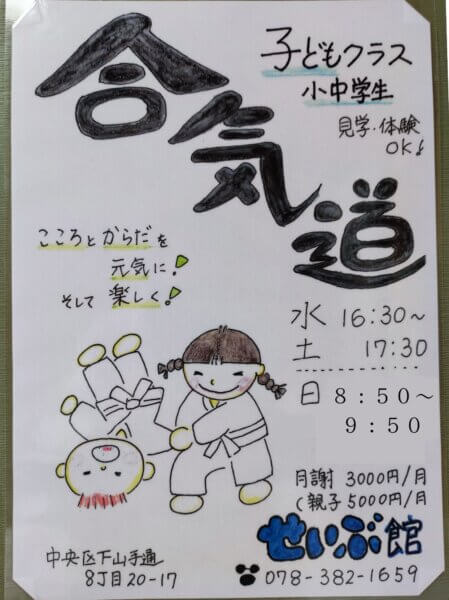 合気道
子どもクラス
小中学生
見学・体験
OK!
こころとからだを
元気に!
そして楽しく!
水 16:30～
土 17:30
日 8:50～
9:50
月謝 3000円/月
(親子 5000円/月
せいぶ館
中央区下山手通
8丁目20-17
078-382-1659